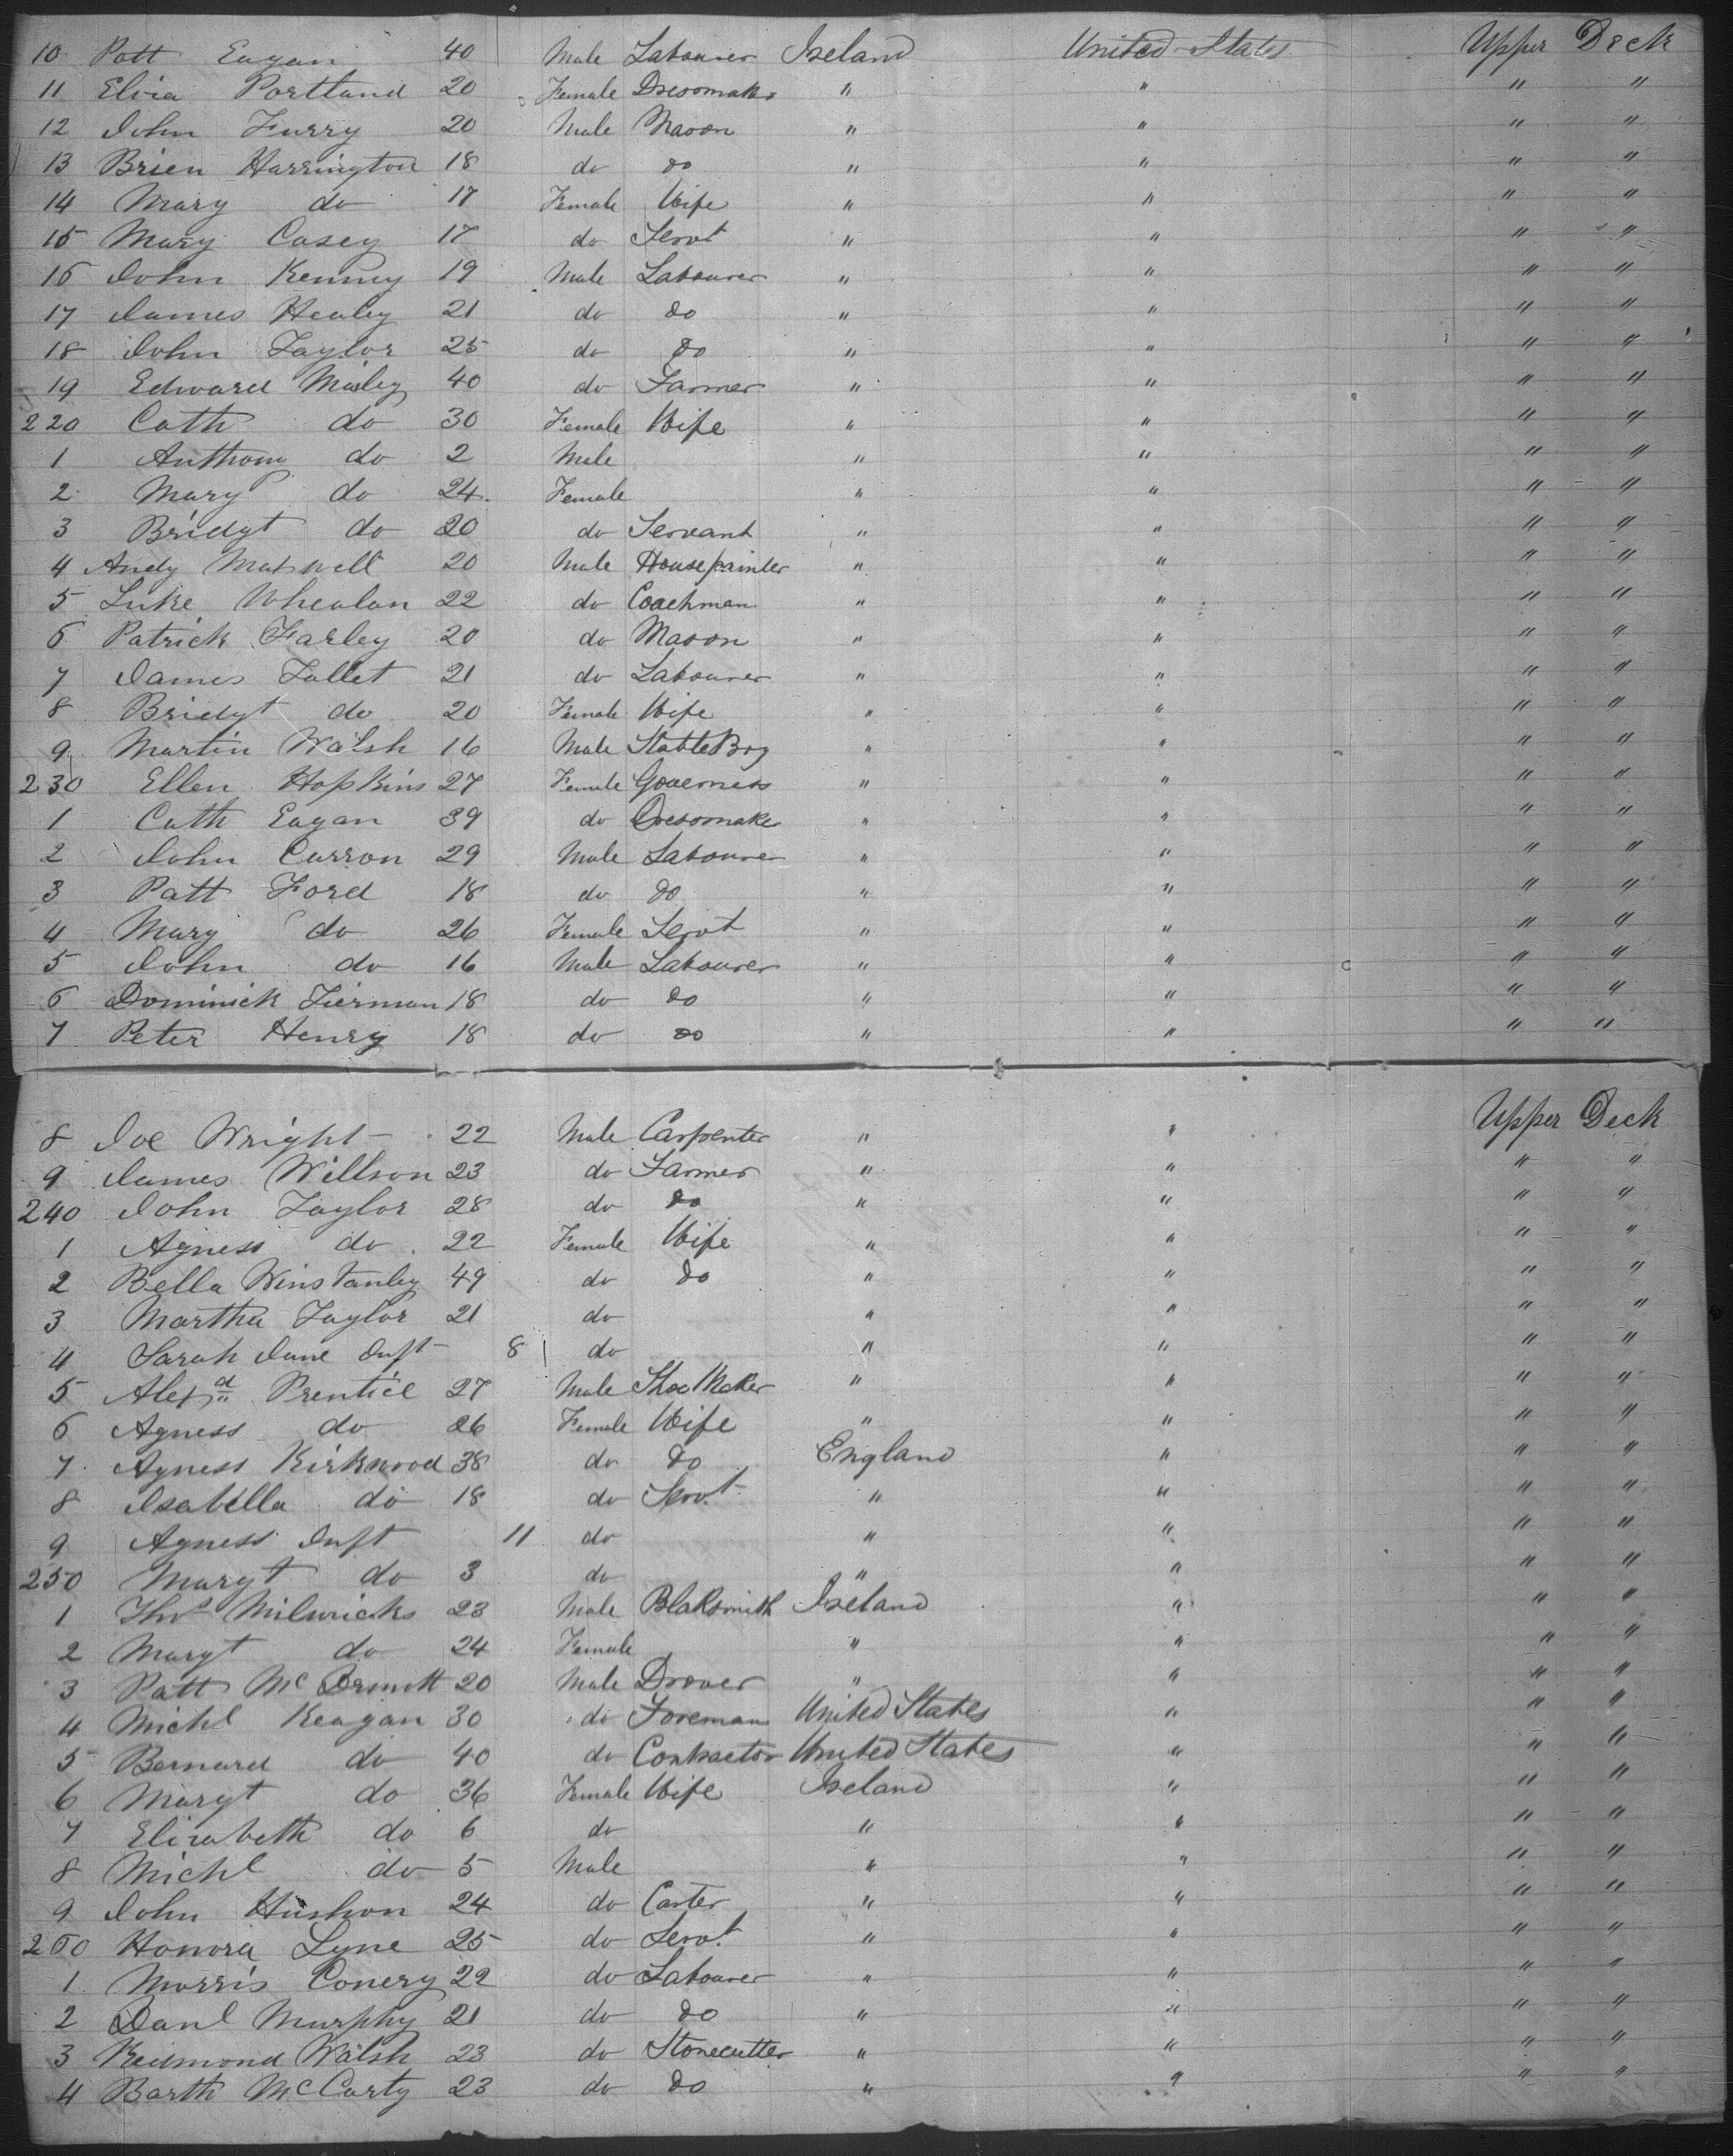 10 Patt Eagan 40 Male Labourer Ireland United States Upper Deck
11 Eliza Portland 20 Female Dressmaker " " " "
12 John Furry 20 Male Mason " " " "
13 Brien Harrington 18 do do " " " "
14 Mary do 17 Female Wife " " " "
15 Mary Casey 17 do Servt " " " "
16 John Kenny 19 Male Labourer " " " "
17 James Healey 21 do do " " " "
18 John Taylor 25 do do " " " "
19 Edward 40 do Farmer " " " "
220 Cath do 30 Female Wife " " " "
1 Anthony do 2 Male " " " "
2 Mary do 24 Female " " " "
3 Bridgt do 20 do Servant " " " "
4 Andy Maxwell 20 Male Housepainter " " " "
5 Luke Whealan 22 do Coachman " " " "
6 Patrick Farley 20 do Mason " " " "
7 James Tallet 21 do Labourer " " " "
8 Bridgt do 20 Female Wife " " " "
9 Martin Walsh 16 Male Stable Boy " " " "
230 Ellen Hopkins 27 Female Governess " " " "
1 Cath Eagan 39 do Dressmaker " " " "
2 John Curron 29 Male Labourer " " " "
3 Patt Ford 18 do do " " " "
4 Mary do 26 Female Servt " " " "
5 John do 16 Male Labourer " " " "
6 Dominick Tierman 18 do do " " " "
7 Peter Henry 18 do do " " " "
8 Joe Wright 22 Male Carpenter " " Upper Deck
9 James Willson 23 do Farmer " " " "
240 John Taylor 28 do do " " " "
1 Agness do 22 Female Wife " " " "
2 Bella Winstanley 49 do do " " " "
3 Martha Taylor 21 do " " " "
4 Sarah Jane Inft 8 do " " " "
5 Alexd Prentice 27 Male Shoe Maker " " " "
6 Agness do 26 Female Wife " " " "
7 Agness Kirkwood 38 do do England " " "
8 Isabella do 18 do Servt " " " "
9 Agness Inft 11 do " " " "
250 Margt do 3 do " " " "
1 Thos 23 Male Blaksmith Ireland " " "
2 Margt do 24 Female " " " "
3 Patt McDermott 20 Male Drover " " " "
4 Michl Keagan 30 do Foreman United States " " "
5 Bernard do 40 do Contractor United States " " "
6 Margt do 36 Female Wife Ireland " " "
7 Elizabeth do 6 do " " " "
8 Michl do 5 Male " " " "
9 John Hushon 24 do Carter " " " "
260 Honora Lyne 25 do Servt " " " "
1 Morris Conery 22 do Labourer " " " "
2 Danl Murphy 21 do do " " " "
3 Redmond Walsh 23 do Stonecutter " " " "
4 Barth McCarty 23 do do " " " "